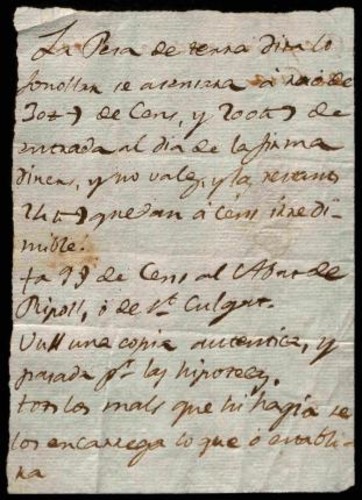 La Pesa de terra dita lo
fonollar se asensara á raó de
30 de Cens, y 200 de
entrada al dia de la firma
diners, y no vale, y la restants
24 quedan á Cens irredi-
mible.
fa 9 de Cens al Abat de
Ripoll, ó de St. Culgat.
Vull una copia autentica, y
pasada pr. las hipotecs,
tots los mals que hi hagia se
los encarrega lo que ó establi-
ra